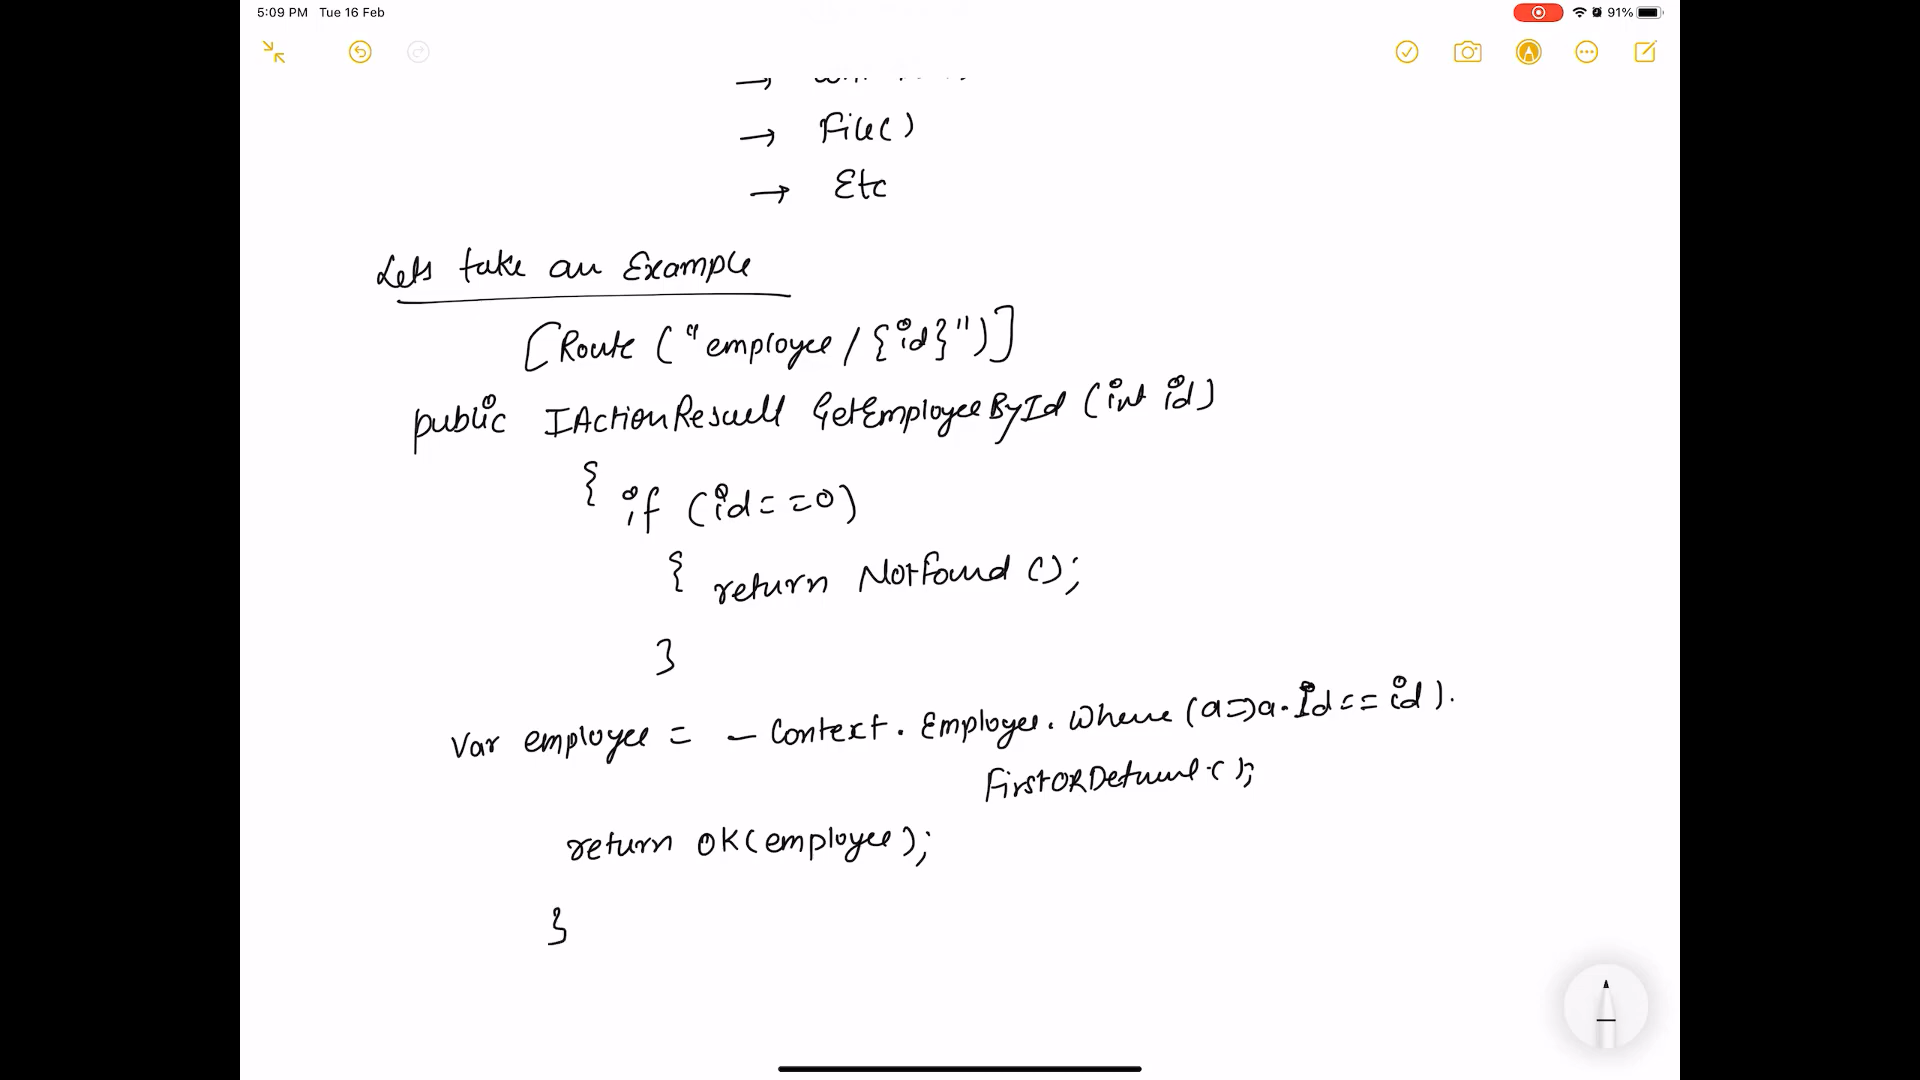 5:09 PM Tue 16 Feb
91%
→ File()
→ Etc
Lets take an Example
[Route ("employee/{id}")]
public IActionResult GetEmployeeById (int id)
{ if (id==0)
{ return NotFound ();
}
Var employee = _Context.Employee.Where(a=>a.Id==id).
FirstORDefault();
return OK(employee);
}